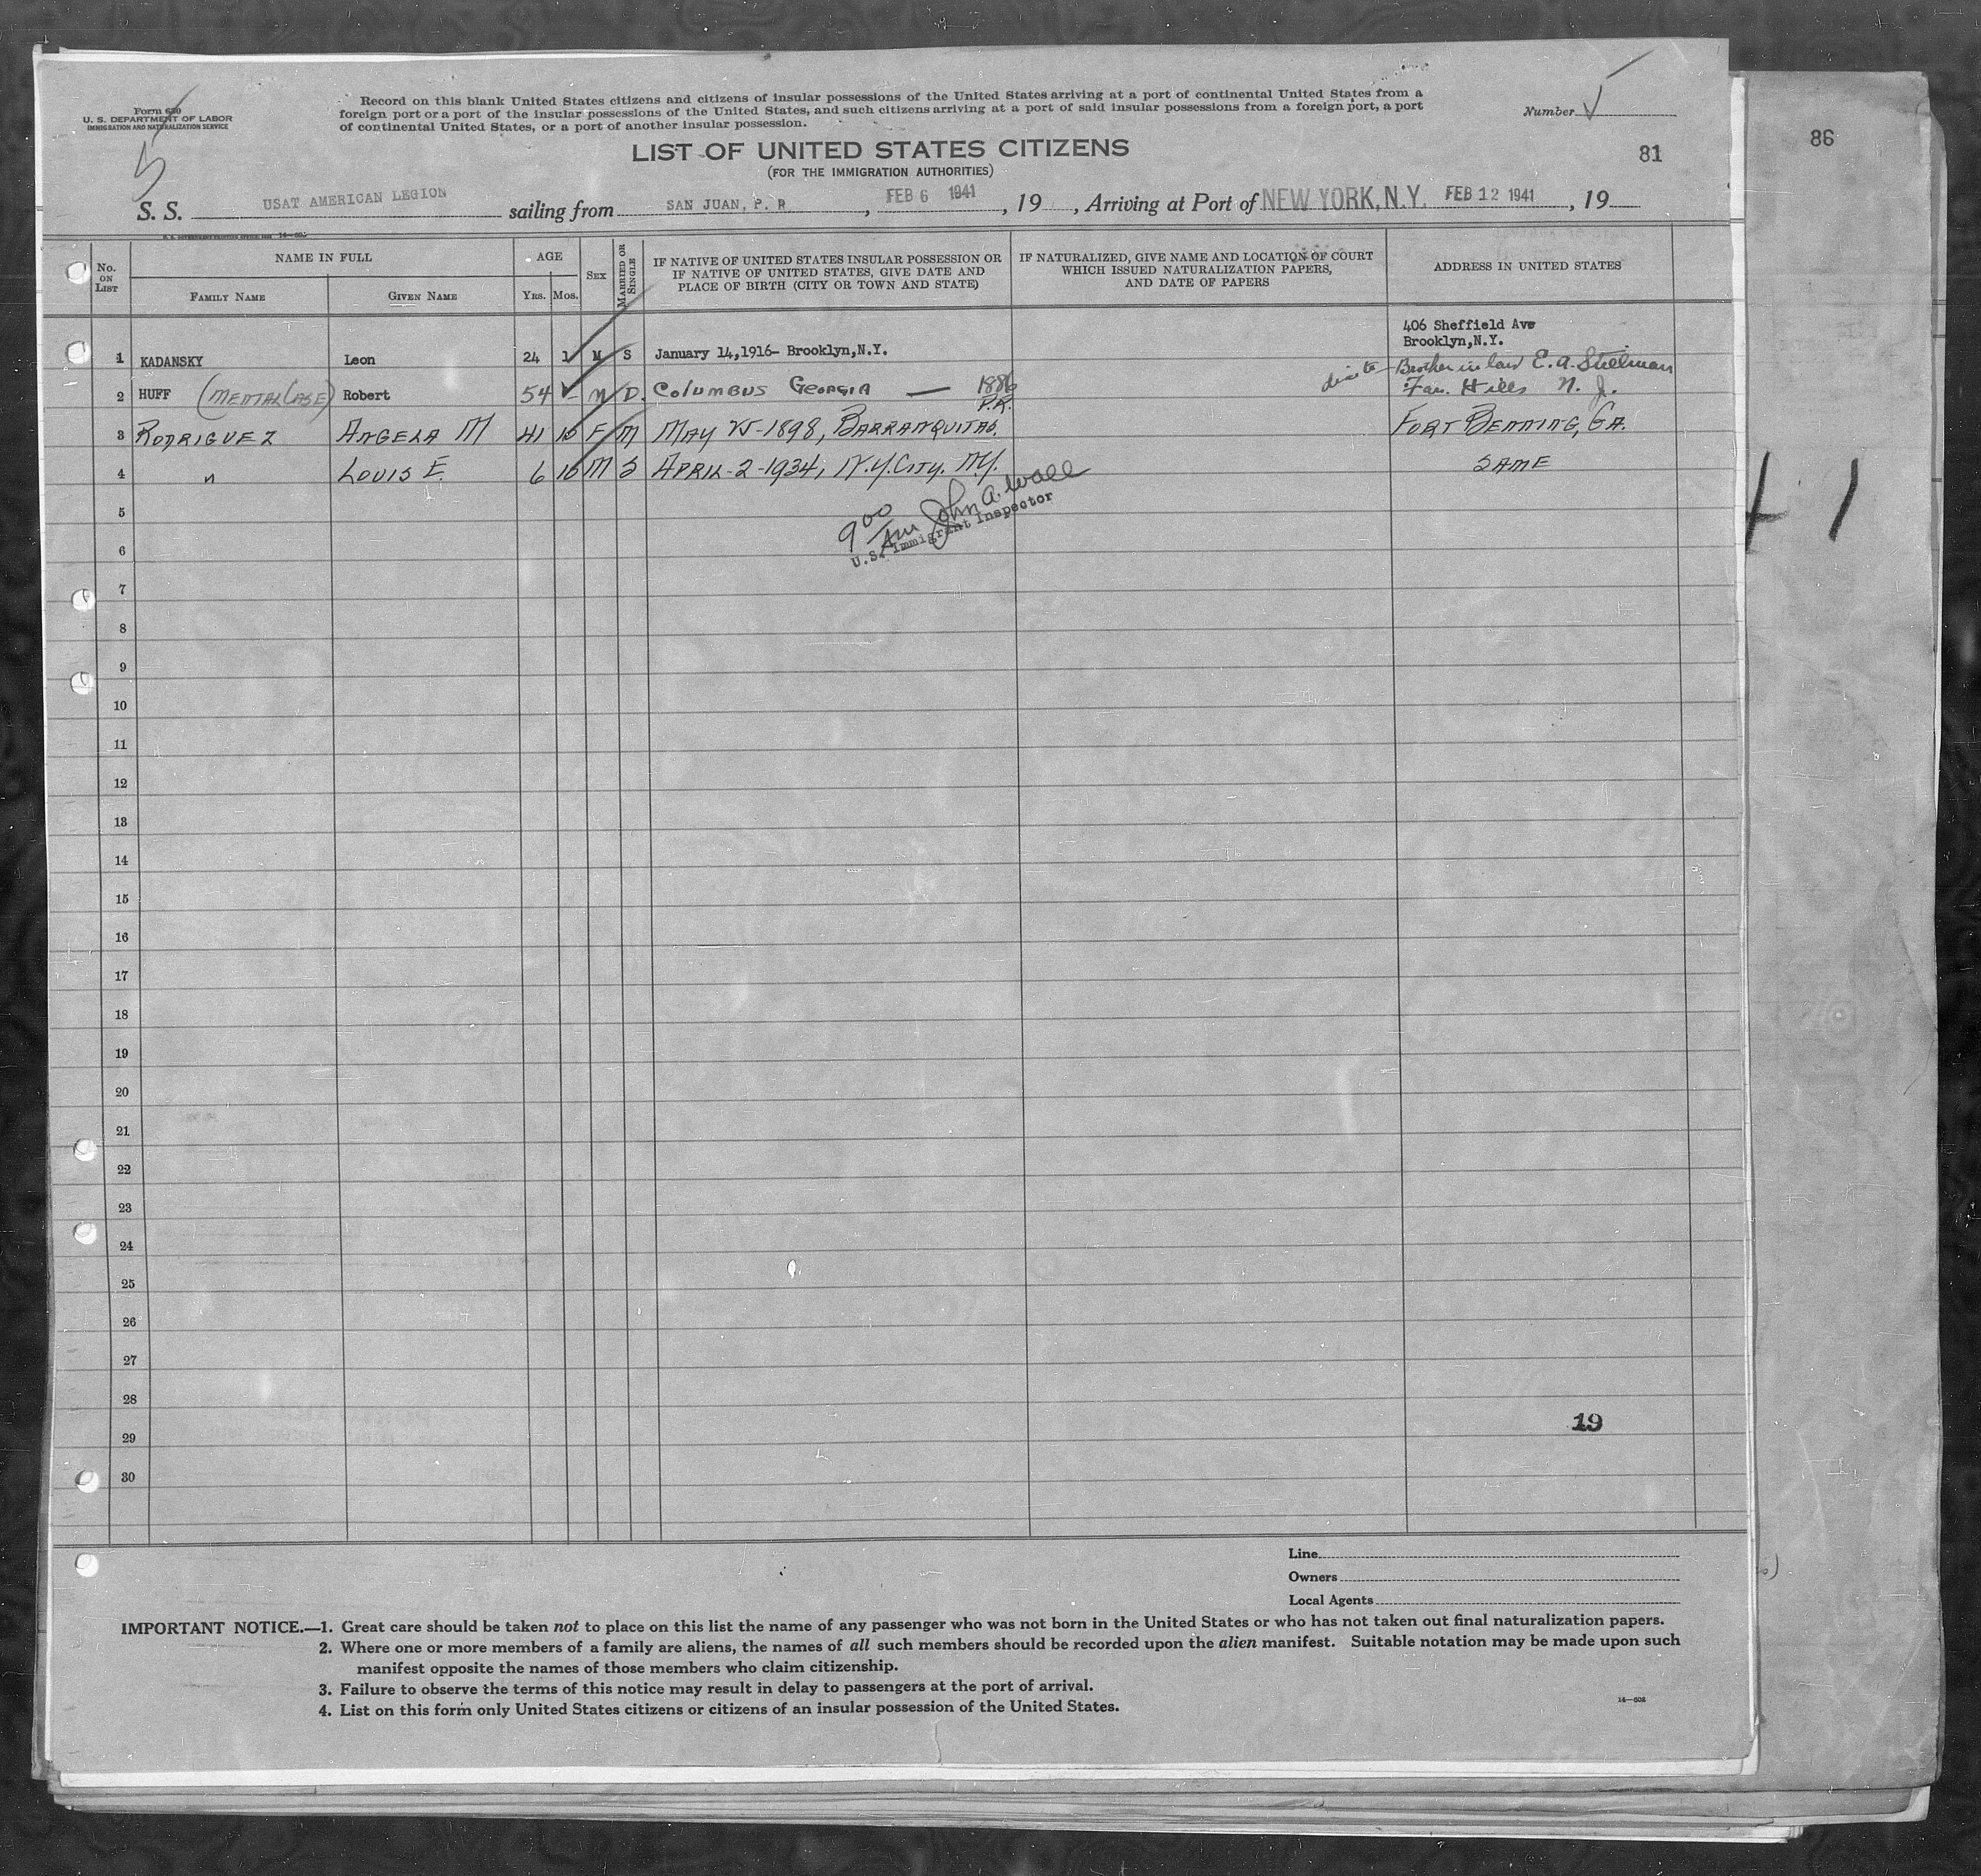 Form 630
U. S. DEPARTMENT OF LABOR
IMMIGRATION AND NATURALIZATION SERVICE
Record on this blank United States citizens and citizens of insular possessions of the United States arriving at a port of continental United States from a
foreign port or a port of the insular possessions of the United States, and such citizens arriving at a port of said insular possessions from a foreign port, a port
of continental United States, or a port of another insular possession.
Number
86
5
LIST OF UNITED STATES CITIZENS
(FOR THE IMMIGRATION AUTHORITIES)
81
S. S. USAT AMERICAN LEGION sailing from SAN JUAN, P. R , FEB 6 1941 , 19 , Arriving at Port of NEW YORK, N.Y. FEB 12 1941 , 19
No. ON LIST
NAME IN FULL
FAMILY NAME
GIVEN NAME
AGE
YRS. MOS.
SEX
MARRIED OR SINGLE
IF NATIVE OF UNITED STATES INSULAR POSSESSION OR
IF NATIVE OF UNITED STATES, GIVE DATE AND
PLACE OF BIRTH (CITY OR TOWN AND STATE)
IF NATURALIZED, GIVE NAME AND LOCATION OF COURT
WHICH ISSUED NATURALIZATION PAPERS,
AND DATE OF PAPERS
ADDRESS IN UNITED STATES
406 Sheffield Ave
1 KADANSKY Leon 24 1 M S January 14,1916- Brooklyn,N.Y. Brooklyn,N.Y.
Brother in law E. A. Stillman
2 HUFF (MENTAL CASE) Robert 54 - M D. COLUMBUS GEORGIA — 1886 Far. Hills N. J.
P.R.
3 RODRIGUEZ ANGELA M 41 10 F M MAY 25-1898, BARRANQUITAS. FORT BENNING, GA.
4 " LOUIS E. 6 10 M S APRIL-2-1934, N.Y.CITY. N.Y. SAME
5
9 00 AM John A. Wall
U.S. Immigrant Inspector
6
7
8
9
10
11
12
13
14
15
16
17
18
19
20
21
22
23
24
25
26
27
28
19
29
30
Line
Owners
Local Agents
IMPORTANT NOTICE.—1. Great care should be taken not to place on this list the name of any passenger who was not born in the United States or who has not taken out final naturalization papers.
2. Where one or more members of a family are aliens, the names of all such members should be recorded upon the alien manifest. Suitable notation may be made upon such
manifest opposite the names of those members who claim citizenship.
3. Failure to observe the terms of this notice may result in delay to passengers at the port of arrival.
4. List on this form only United States citizens or citizens of an insular possession of the United States.